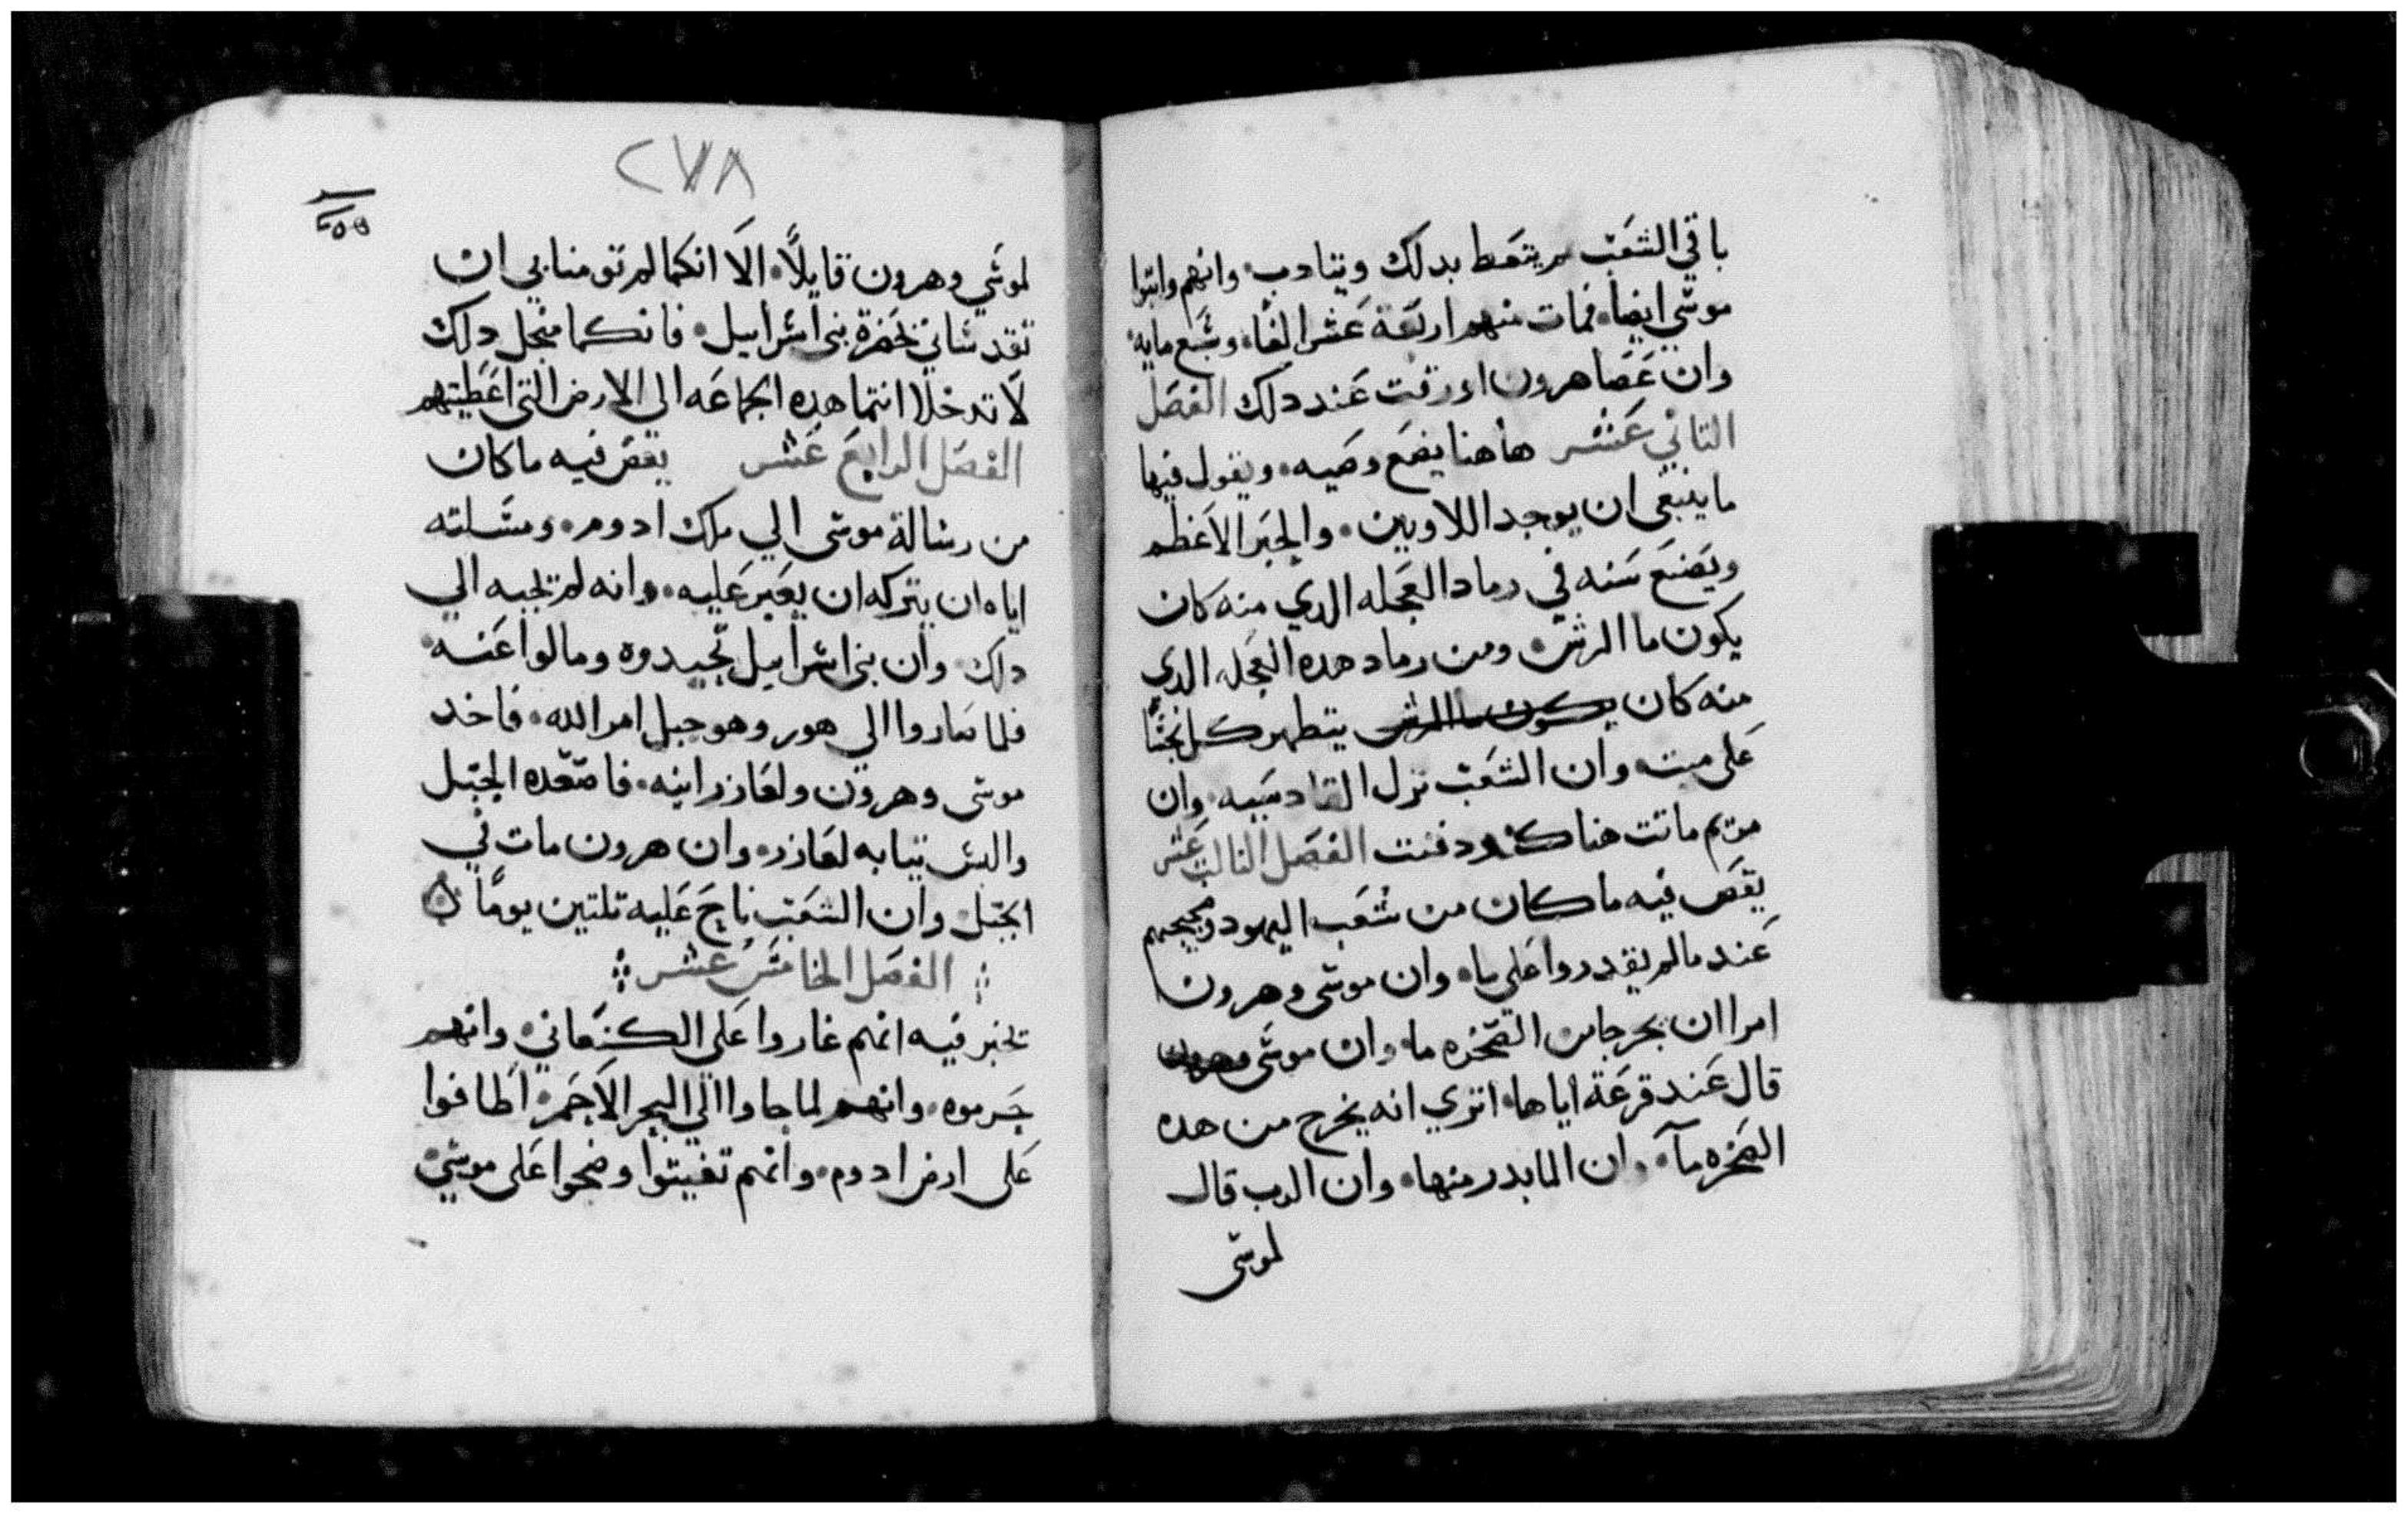 باقي الشعب لم يتعط بدلك ويتادب. وانهم واتبوا
موسي ايضا. فمات منهم اربعة عشر الفا. وسبع مايه
وان عصا هرون اورقت عند دلك الفصل
التاني عشر هاهنا يضع وصيه. ويقول فيها
ما ينبغي ان يوجد اللاويين. والحبر الاعظم
ويضع سنه في رماد العجله الدي منه كان
يكون ما الرش. ومن رماد هده العجله الدي
منه كان يكون ما الرش يتطهر كل نجسا
على ميت. وان الشعب نزل القادسيه. وان
مريم ماتت هناك ودفنت الفصل التالت عشر
يقص فيه ما كان من شعب اليهود وضجيجهم
عند ما لم يقدروا على ما. وان موسى وهرون
امرا ان يخرجا من الصخره ما. وان موسى وهرون
قال عند قرعة اياها. اتري انه يخرج من هده
الصخره مآ. وان الما بدر منها. وان الرب قال
لموسى
٢٧٨
٢٥٥
لموسي وهرون قايلاً. الا انكما لم تومنا بي ان
تقدساني بحضرة بني اسراييل. فانكما منجل دلك
لا تدخلا انتما هده الجماعه الى الارض التي اعطيتهم
الفصل الرابع عشر يقص فيه ما كان
من رسالة موسى الي ملك ادوم. ومسلته
اياه ان يتركه ان يعبر عليه. وانه لم يجبه الي
دلك. وان بني اسراييل تحيدوه ومالوا عنه.
فلما صاروا الي هور وهو جبل امر الله. فاخد
موسى وهرون ولعازر ابنه. فاصعده الجبل
والبس تيابه لعازر. وان هرون مات في
الجبل. وان الشعب ناح عليه تلتين يوماً
الفصل الخامس عشر
تخبر فيه انهم غاروا على الكنعاني. وانهم
جرموه. وانهم لما جاوا الي البحر الاحمر. اطافوا
على ارض ادوم. وانهم تغيتوا وضجوا على موسي.